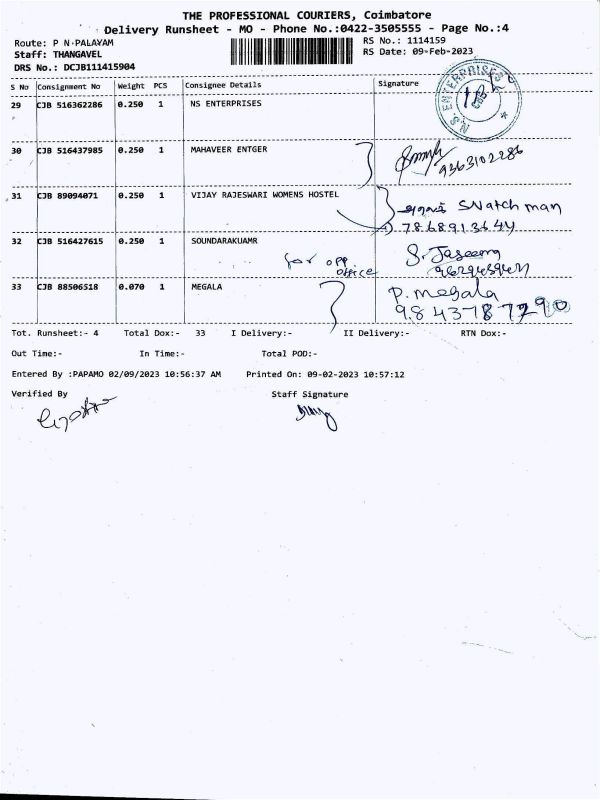 THE PROFESSIONAL COURIERS, Coimbatore
Delivery Runsheet - MO - Phone No.:0422-3505555 - Page No.:4
Route: P N PALAYAM
Staff: THANGAVEL
DRS No.: DCJB111415904
RS No.: 1114159
RS Date: 09-Feb-2023
S No Consignment No Weight PCS Consignee Details Signature
29 CJB 516362286 0.250 1 NS ENTERPRISES
N.S. ENTERPRISES
30 CJB 516437985 0.250 1 MAHAVEER ENTGER
9363102286
31 CJB 89094071 0.250 1 VIJAY RAJESWARI WOMENS HOSTEL
Watch man
7868913644
32 CJB 516427615 0.250 1 SOUNDARAKUAMR
for opp office
S. Jaseema
33 CJB 88506518 0.070 1 MEGALA
P. megala
9843787290
Tot. Runsheet:- 4 Total Dox:- 33 I Delivery:- II Delivery:- RTN Dox:-
Out Time:- In Time:- Total POD:-
Entered By :PAPAMO 02/09/2023 10:56:37 AM Printed On: 09-02-2023 10:57:12
Verified By Staff Signature